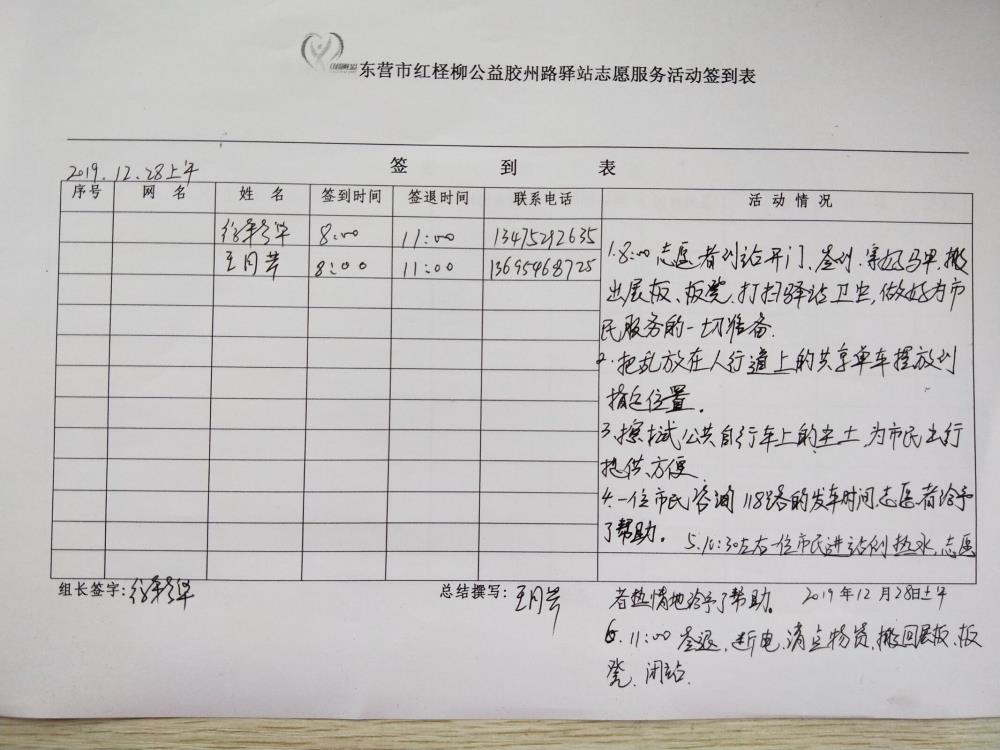 东营市红柽柳公益胶州路驿站志愿服务活动签到表
签 到 表
2019.12.28上午
序号 网 名 姓 名 签到时间 签退时间 联系电话 活 动 情 况
8:00 11:00 13475292635
王月芹 8:00 11:00 13695468725
1.8:00志愿者到站开门、签到、穿好马甲,搬
出展板、板凳,打扫驿站卫生,做好为市
民服务的一切准备.
2.把乱放在人行道上的共享单车摆放到
指定位置。
3.擦拭公共自行车上的尘土,为市民出行
提供方便
4.一位市民咨询118路的发车时间,志愿者给予
了帮助。
5.10:30左右一位市民进站倒热水,志愿
组长签字: 总结撰写:王月芹
者热情地给予了帮助。 2019年12月28日上午
6.11:00签退,断电,清点物资,搬回展板、板
凳、闭站.